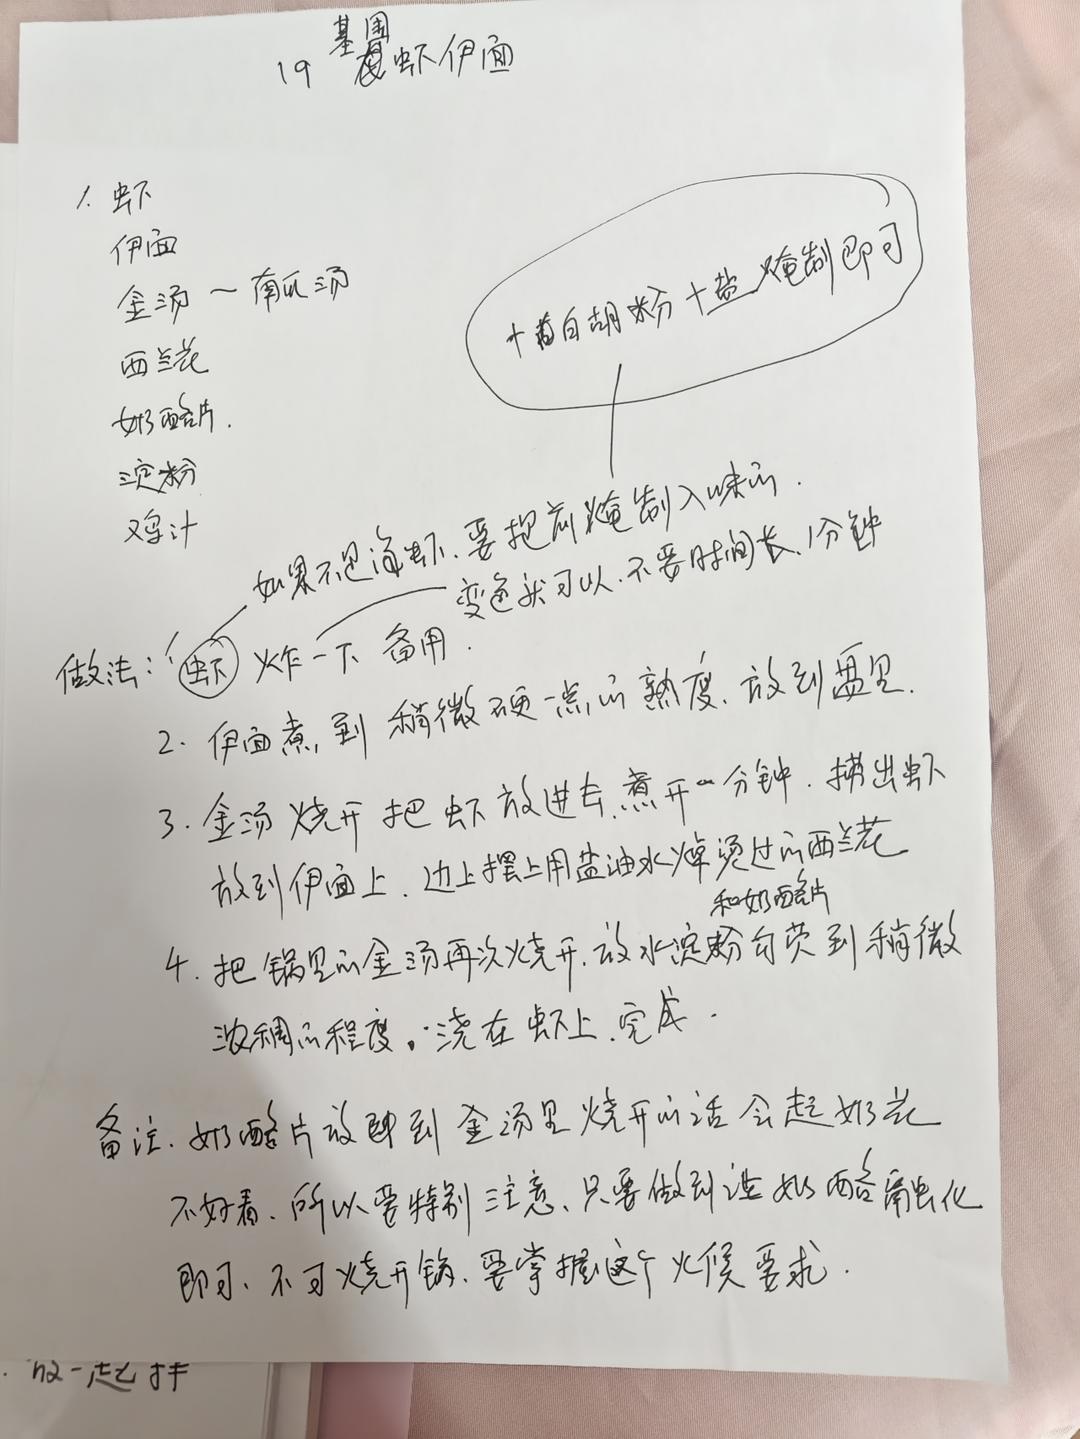 19 基围虾伊面
1. 虾
伊面
金汤～南瓜汤
西兰花
奶酪片.
淀粉
鸡汁
+白胡粉+盐 腌制即可
如果不是海虾、要提前腌制入味的.
变色就可以.不要时间长、1分钟
做法: 1 虾 炸一下 备用.
2. 伊面煮到稍微硬一点的熟度.放到盘里.
3. 金汤烧开把虾放进去.煮开一分钟.捞出虾
放到伊面上.边上摆上用盐油水焯烫过的西兰花
和奶酪片
4. 把锅里的金汤再次烧开.放水淀粉勾芡到稍微
浓稠的程度。浇在虾上.完成.
备注.奶酪片放到金汤里烧开的话会起奶花
不好看、所以要特别注意、只要做到让奶酪融化
即可、不可烧开锅.要掌握这个火候要求.
放一起拌